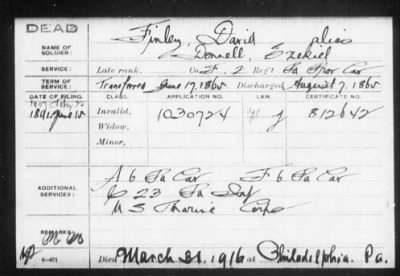 DEAD
NAME OF SOLDIER: Finley, David alias
Donnell, Ezekiel
SERVICE: Late rank, Co. F, 2 Reg't Pa Prov Cav
TERM OF SERVICE: Transferred June 17, 1865 Discharged August 7, 1865
DATE OF FILING. CLASS. APPLICATION NO. LAW. CERTIFICATE NO.
1891 June 15 Invalid, 1030724 g 812642
Widow,
Minor,
ADDITIONAL SERVICES: A 6 Pa Cav F 6 Pa Cav
C 23 Pa Inf
U S Marine Corps
REMARKS:
Died March 31, 1916 at Philadelphia, Pa.